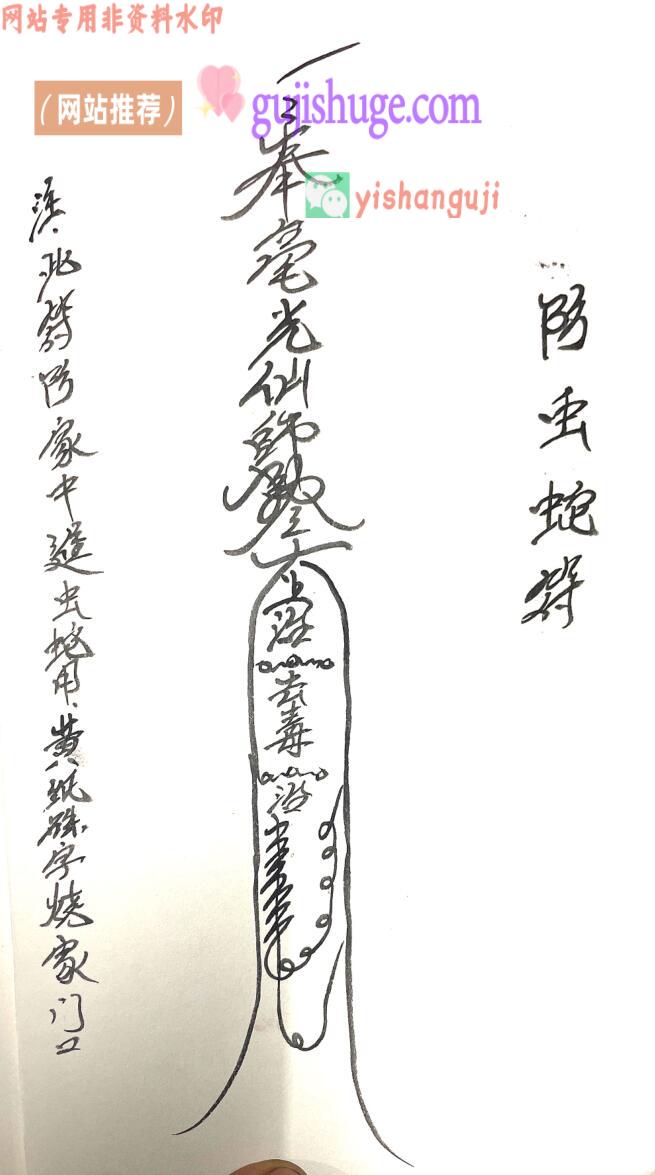 网站专用非资料水印
（网站推荐）
gujishuge.com
yishanguji
防虫蛇符
奉
光仙师
去毒
注：此符防家中进虫蛇用，黄纸硃字烧家门口